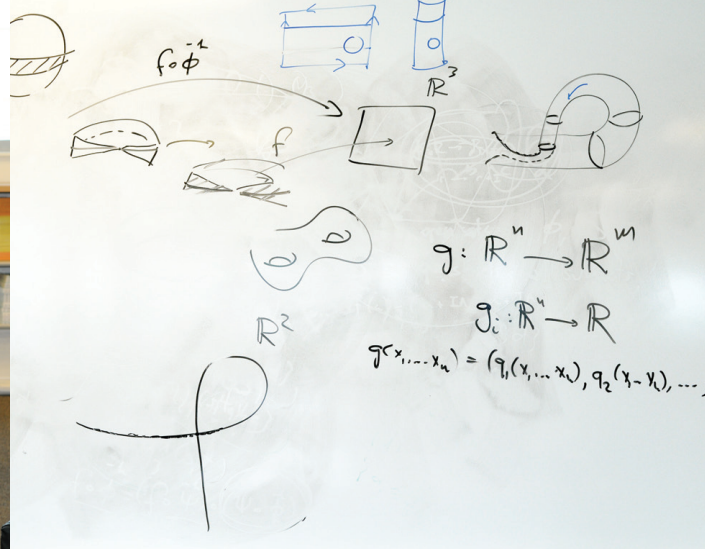 f∘ϕ⁻¹
ℝ³
f
g: ℝⁿ → ℝᵐ
gᵢ: ℝⁿ → ℝ
ℝ²
g(x₁,...xₙ) = (g₁(x₁,...xₙ), g₂(x₁–xₙ), ...